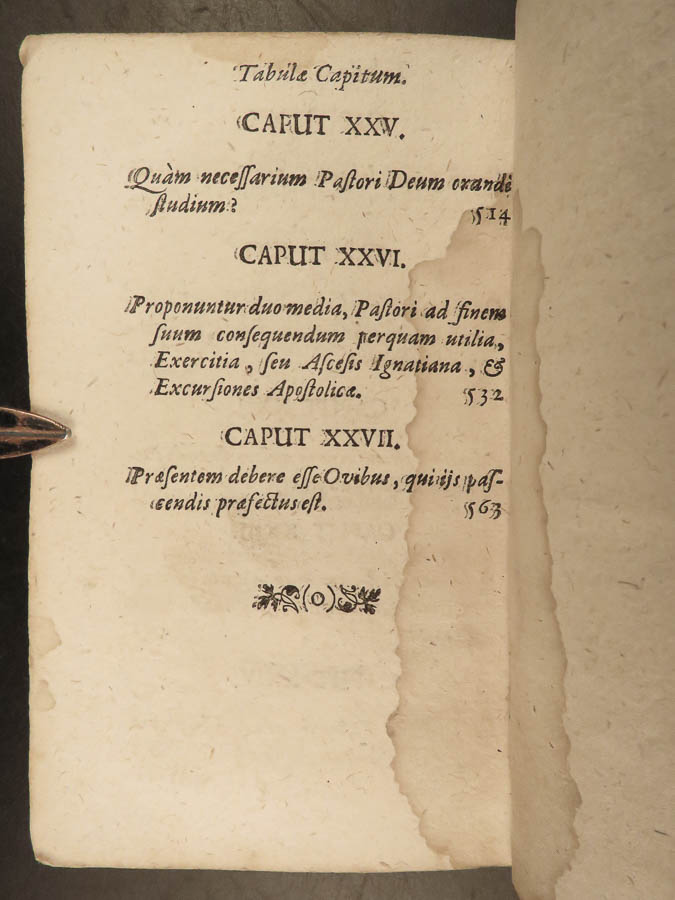 Tabulæ Capitum.
CAPUT XXV.
Quàm necessarium Pastori Deum orandi
studium? 514
CAPUT XXVI.
Proponuntur duo media, Pastori ad finem
suum consequendum perquam utilia,
Exercitia, seu Ascesis Ignatiana, &
Excursiones Apostolicæ. 532
CAPUT XXVII.
Præsentem debere esse Ovibus, qui ijs pas-
cendis præfectus est. 563
(o)